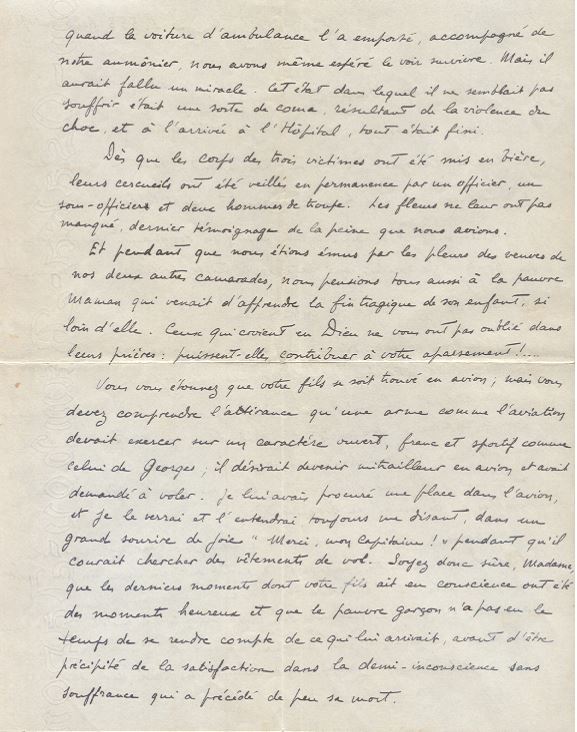 quand la voiture d'ambulance l'a emporté, accompagné de
notre aumônier, nous avons même espéré le voir survivre. Mais il
aurait fallu un miracle. Cet état dans lequel il ne semblait pas
souffrir était une sorte de coma, résultant de la violence du
choc, et à l'arrivée à l'Hôpital, tout était fini.
Dès que les corps des trois victimes ont été mis en bière,
leurs cercueils ont été veillés en permanence par un officier, un
sous-officier et deux hommes de troupe. Les fleurs ne leur ont pas
manqué, dernier témoignage de la peine que nous avions.
Et pendant que nous étions émus par les pleurs des veuves de
nos deux autres camarades, nous pensions tous aussi à la pauvre
Maman qui venait d'apprendre la fin tragique de son enfant, si
loin d'elle. Ceux qui croient en Dieu ne vous ont pas oublié dans
leurs prières : puissent-elles contribuer à votre apaisement !....
Vous vous étonnez que votre fils se soit trouvé en avion ; mais vous
devez comprendre l'attirance qu'une arme comme l'aviation
devait exercer sur un caractère ouvert, franc et sportif comme
celui de Georges ; il désirait devenir mitrailleur en avion et avait
demandé à voler. Je lui avais procuré une place dans l'avion,
et je le verrai et l'entendrai toujours me disant, dans un
grand sourire de joie "Merci, mon Capitaine !" pendant qu'il
courait chercher des vêtements de vol. Soyez donc sûre, Madame,
que les derniers moments dont votre fils ait eu conscience ont été
des moments heureux et que le pauvre garçon n'a pas eu le
temps de se rendre compte de ce qui lui arrivait, avant d'être
précipité de la satisfaction dans la demi-inconscience sans
souffrance qui a précédé de peu sa mort.